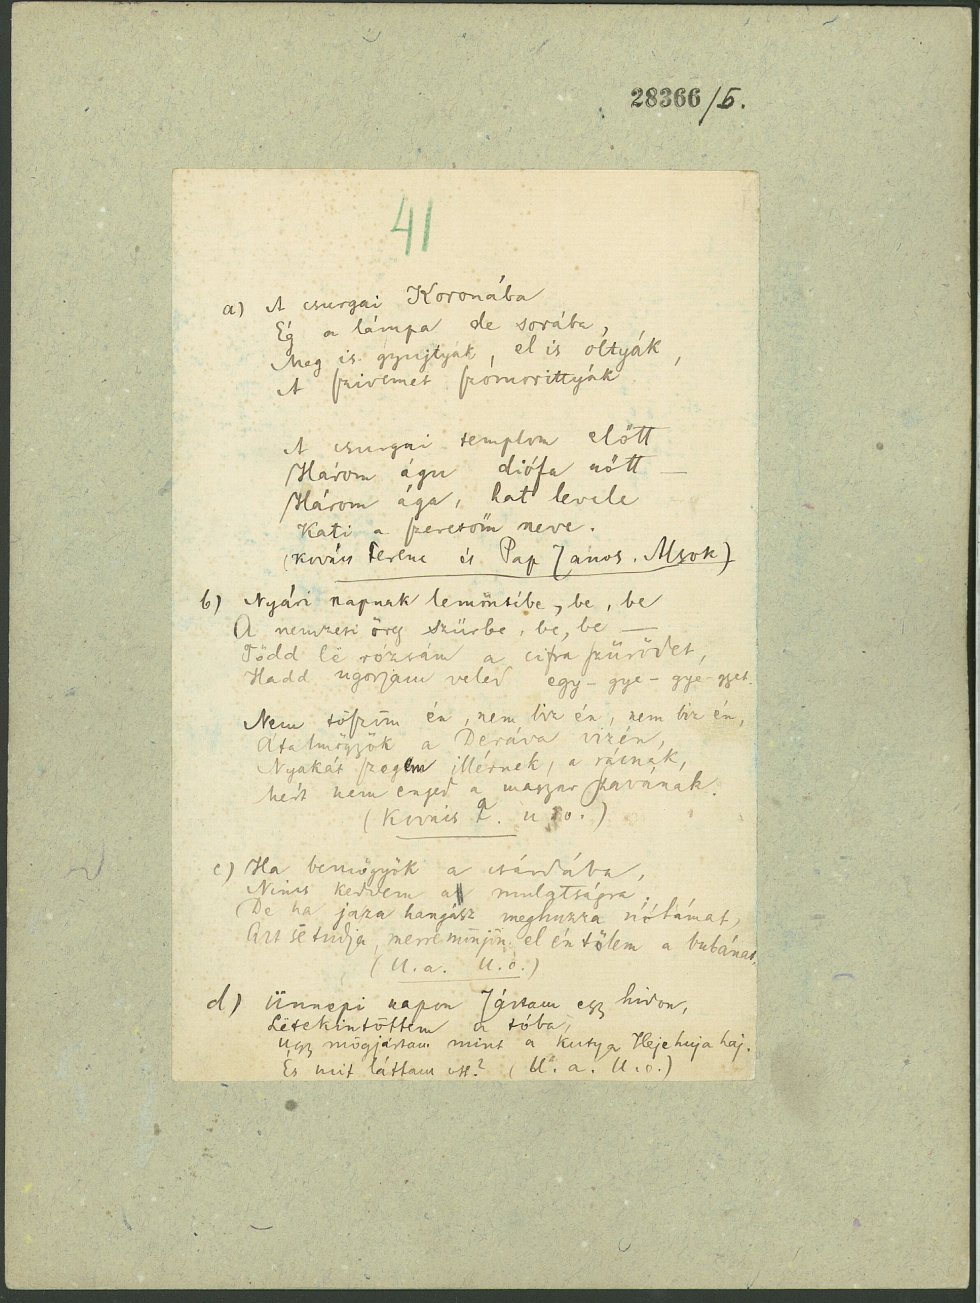 28366/5.
41
a) A csurgai Koronába
Ég a lámpa de sorába,
Meg is gyujtyák, el is oltyák,
A szivemet szomorittyák
A csurgai templom előtt
Három águ diófa nőtt —
Három ága, hat levele
Kati a szeretőm neve.
(Kovács Ferenc és Pap János. Alsok)
b) Nyári napnak lemöntibe, be, be
A nemzeti öreg szürbe, be, be —
Tödd lë rózsám a cifra szürödet,
Hadd ugorjam veled egy-gye-gye-gyet.
Nem töszöm én, nem biz én, nem biz én,
Átalmögyök a Deráva vizén,
Nyakát szegem illernek, a rácnak,
Mert nem enged a magyar szavának.
(Kovács a. u. o.)
c) Ha bemögyök a csárdába,
Nincs kedvem a mulatságra.
De ha jaza hangász meghuzza nótámat,
Azt së tudja, merre mönjön el én tölem a bubánat.
(U. a. U. o.)
d) Ünnepi napon Jártam egy hidon,
Lëtekintöttem a tóba,
Ugy mögjártam mint a kutya Hejehuja haj.
És mit láttam ott? (U. a. U. o.)